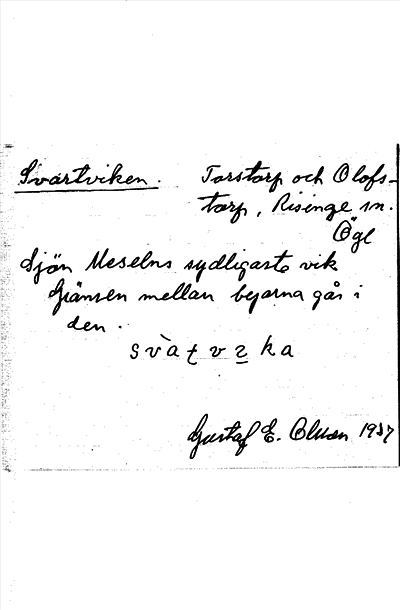 Svartviken. Torstorp och Olofs-
torp, Risinge sn.
Ögl
Sjön Meselns sydligaste vik
Gränsen mellan byarna går i
den.
svàtvzka
Gustaf E. Olsson 1937